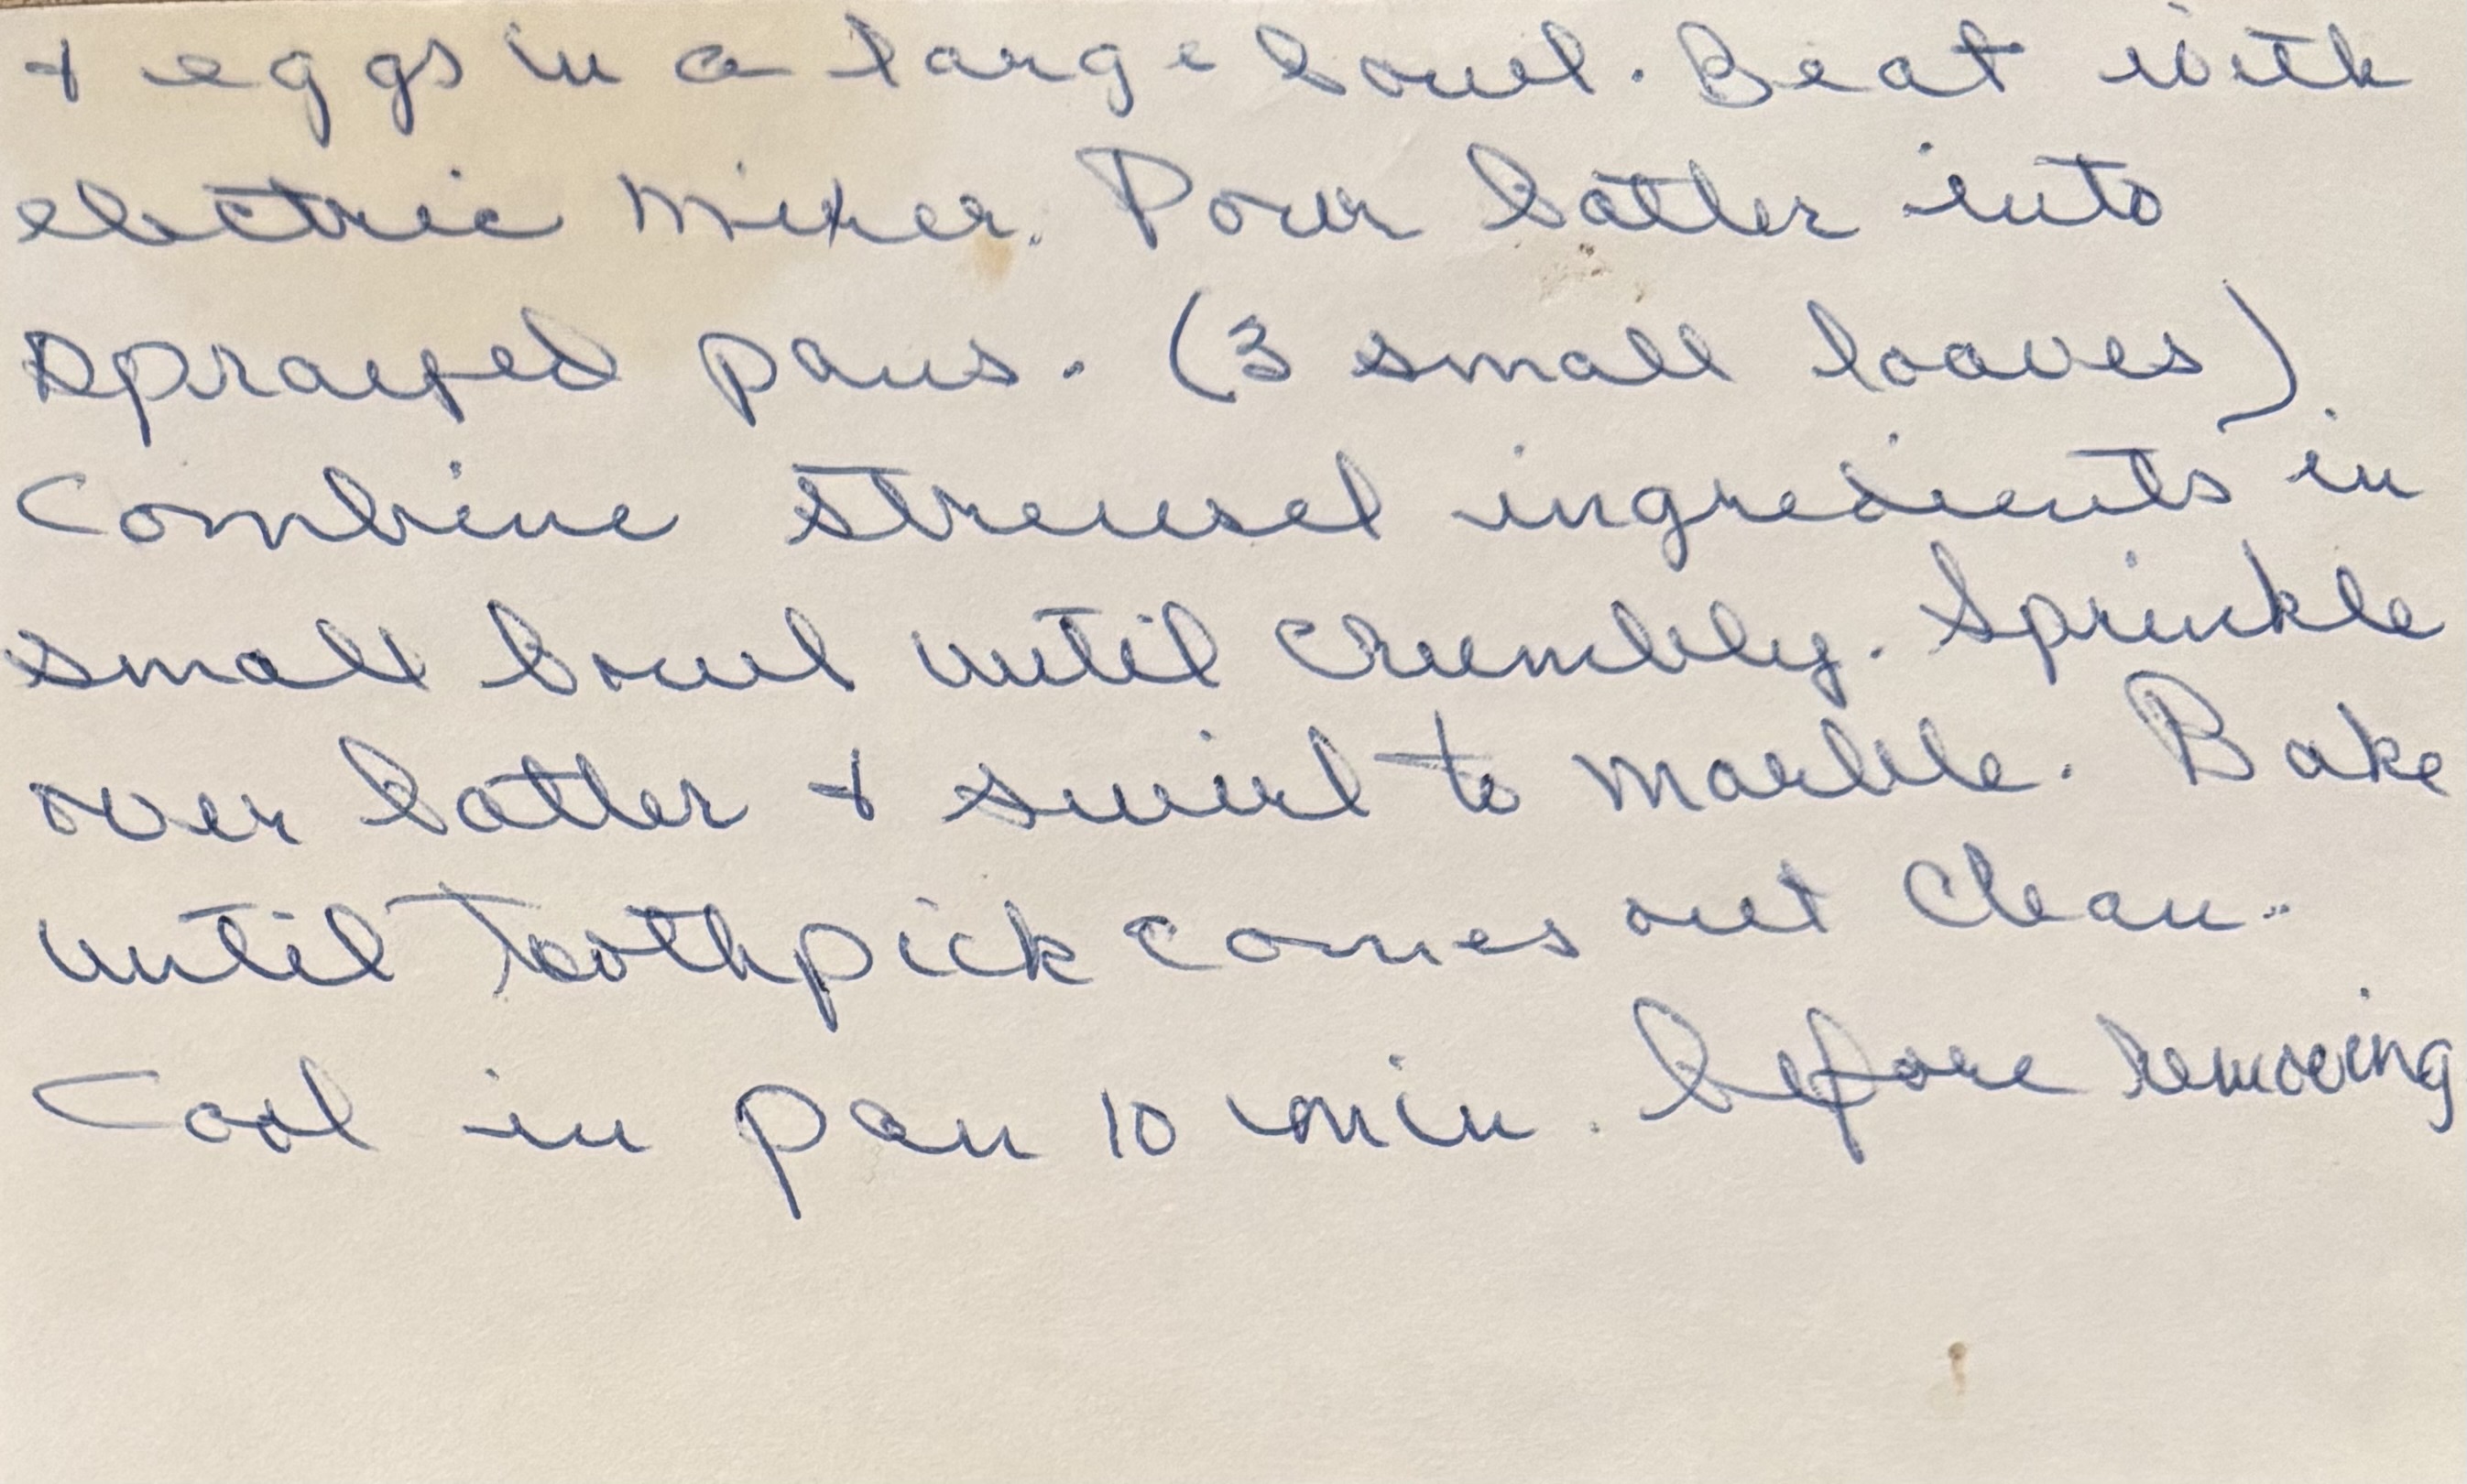 + eggs in a large bowl. Beat with
electric mixer. Pour batter into
sprayed pans. (3 small loaves).
Combine streusel ingredients in
small bowl until crumbly. Sprinkle
over batter + swirl to marble. Bake
until toothpick comes out clean.
Cool in pan 10 min. before removing